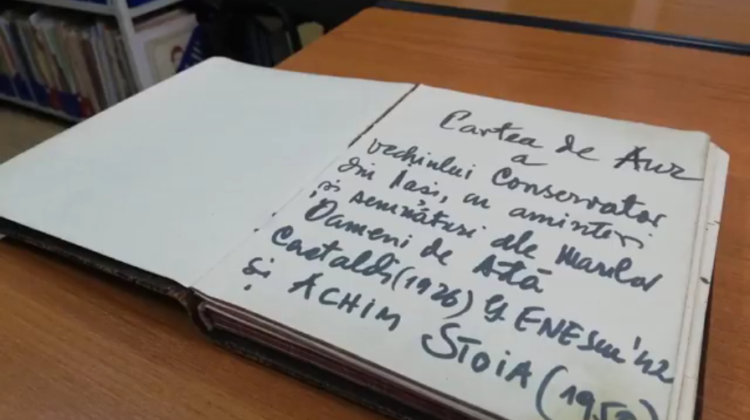 Cartea de Aur
a
vechiului Conservator
din Iasi, cu amintiri
și semnături ale marilor
Oameni de Artă
Castaldi (1926) G ENEScu '42
și ACHIM STOIA (195